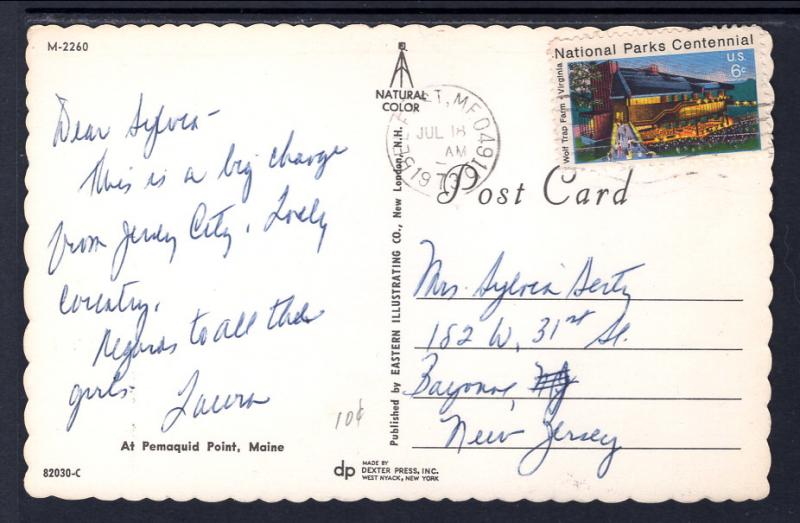 M-2260
Dear Sylvia-
This is a big change
from Jersey City. Lovely
country.
Regards to all the
girls.
Laura
At Pemaquid Point, Maine
82030-C
NATURAL
COLOR
Published by EASTERN ILLUSTRATING CO., New London, N.H.
10¢
dp
MADE BY
DEXTER PRESS, INC.
WEST NYACK, NEW YORK
JUL 18
AM
1973
National Parks Centennial
U.S.
6c
Wolf Trap Farm - Virginia
Post Card
Mrs. Sylvia
182 W. 31st St.
Bayonne,
New Jersey